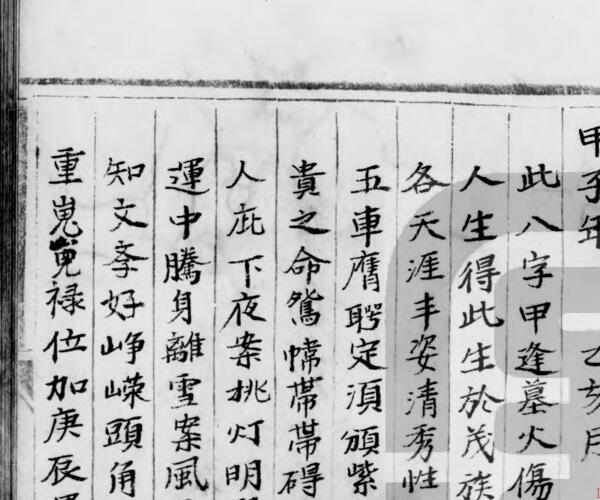 甲子年 乙亥月
此八字甲逢墓火傷
人生得此生於茂族
各天涯丰姿清秀性
五車膺聘定須頒紫
貴之命鴛幃帶帶碍
人庇下夜案挑灯明
運中騰身離雪案風
知文孝好峥嶸頭角
重嵬冕禄位加庚辰